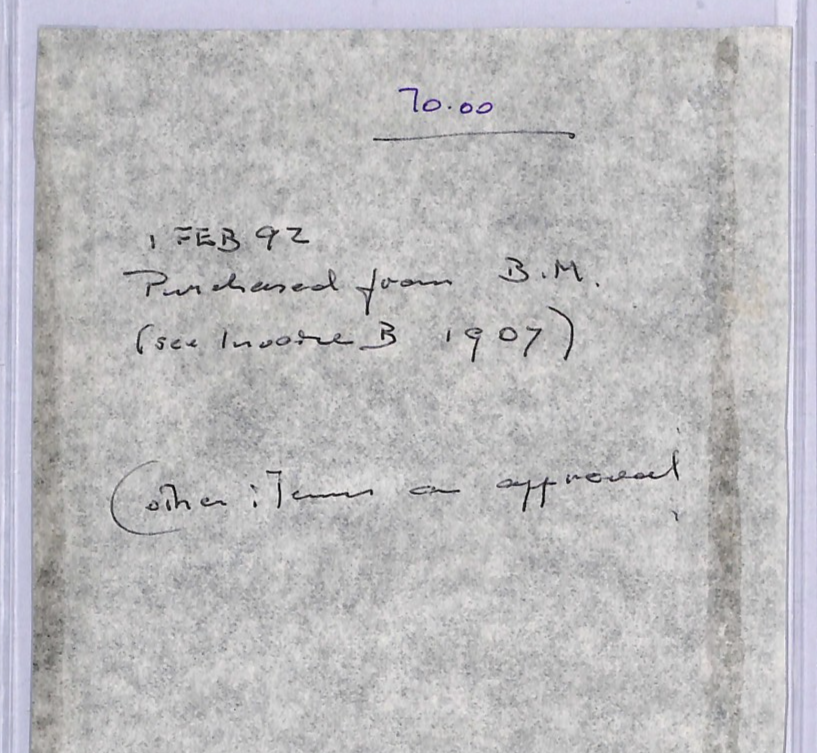 70.00
1 FEB 92
Purchased from B.M.
(see Invoice B 1907)
(other items on approval